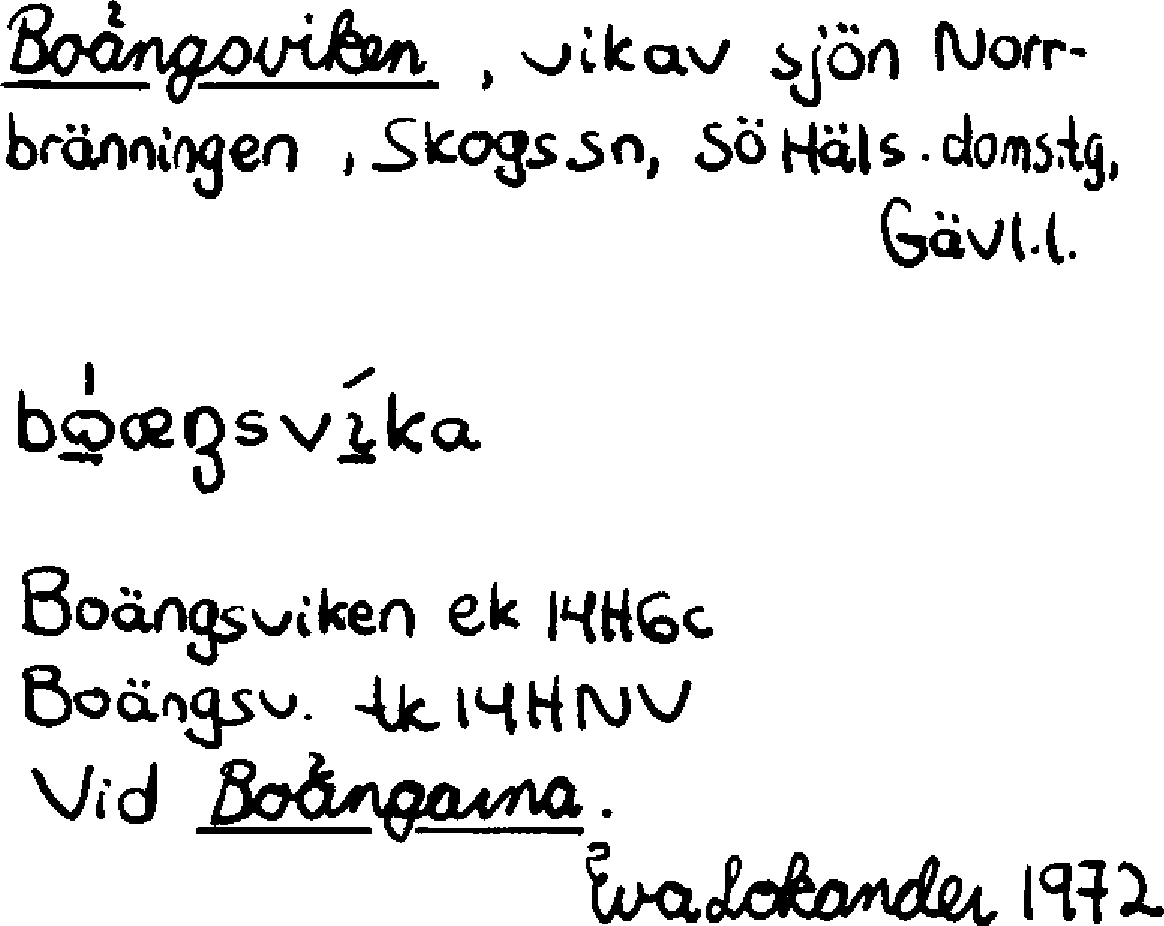 Boängsviken, vik av sjön Norr-
bränningen, Skogs sn, Sö Häls. doms.tg,
Gävl. l.
Boängsviken ek 14H6c
Boängsv. tk 14HNV
Vid Boängarna.
Eva Lokander 1972